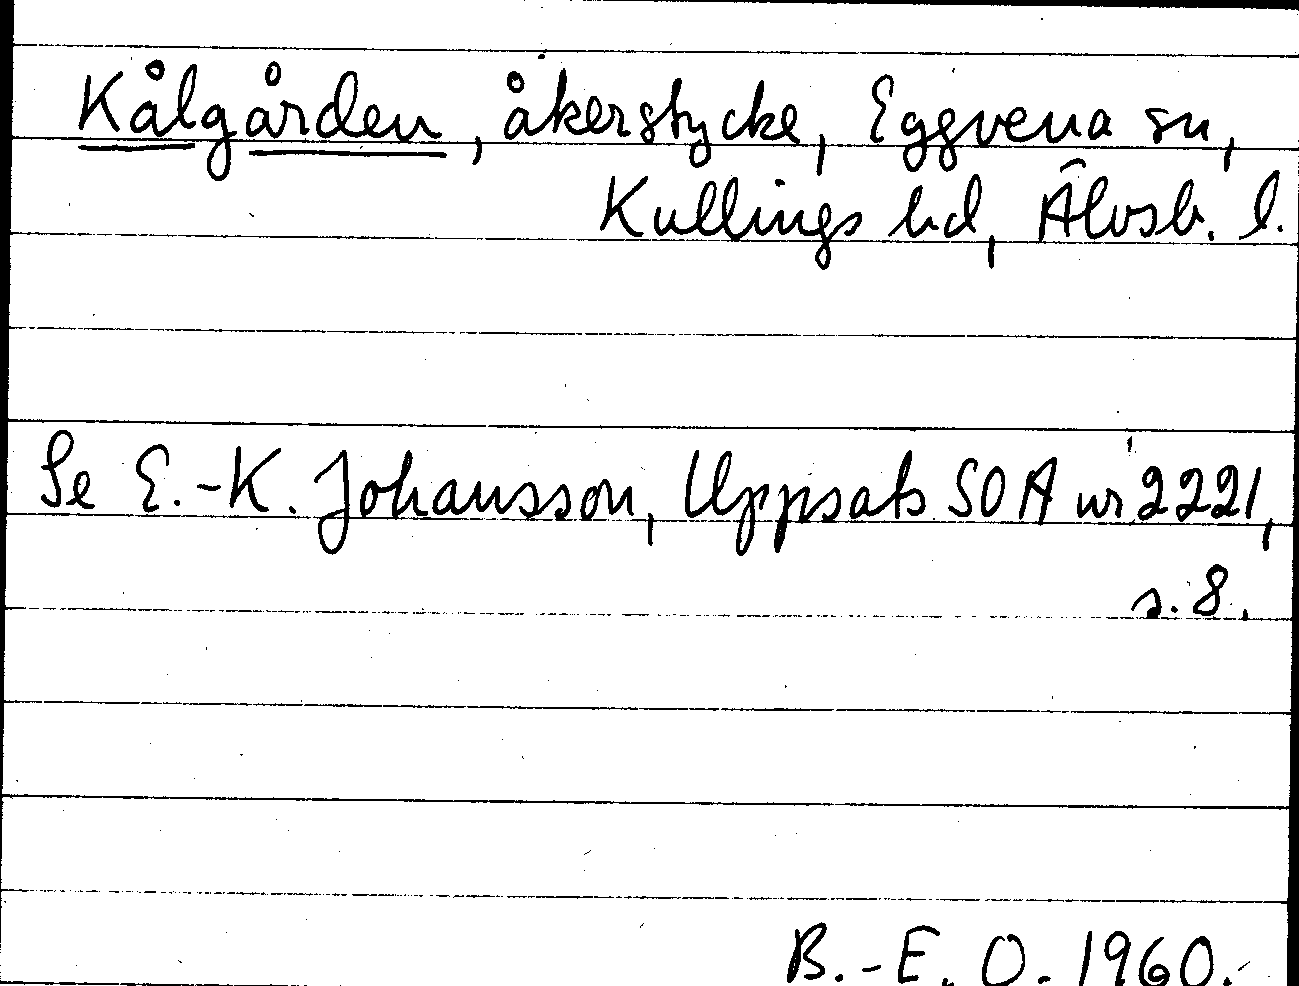 Kålgården, åkerstycke, Eggvena sn,
Kullings hd, Älvsb. l.
Se E.-K. Johansson, Uppsats SOA nr 2221,
s. 8.
B.-E. O. 1960.